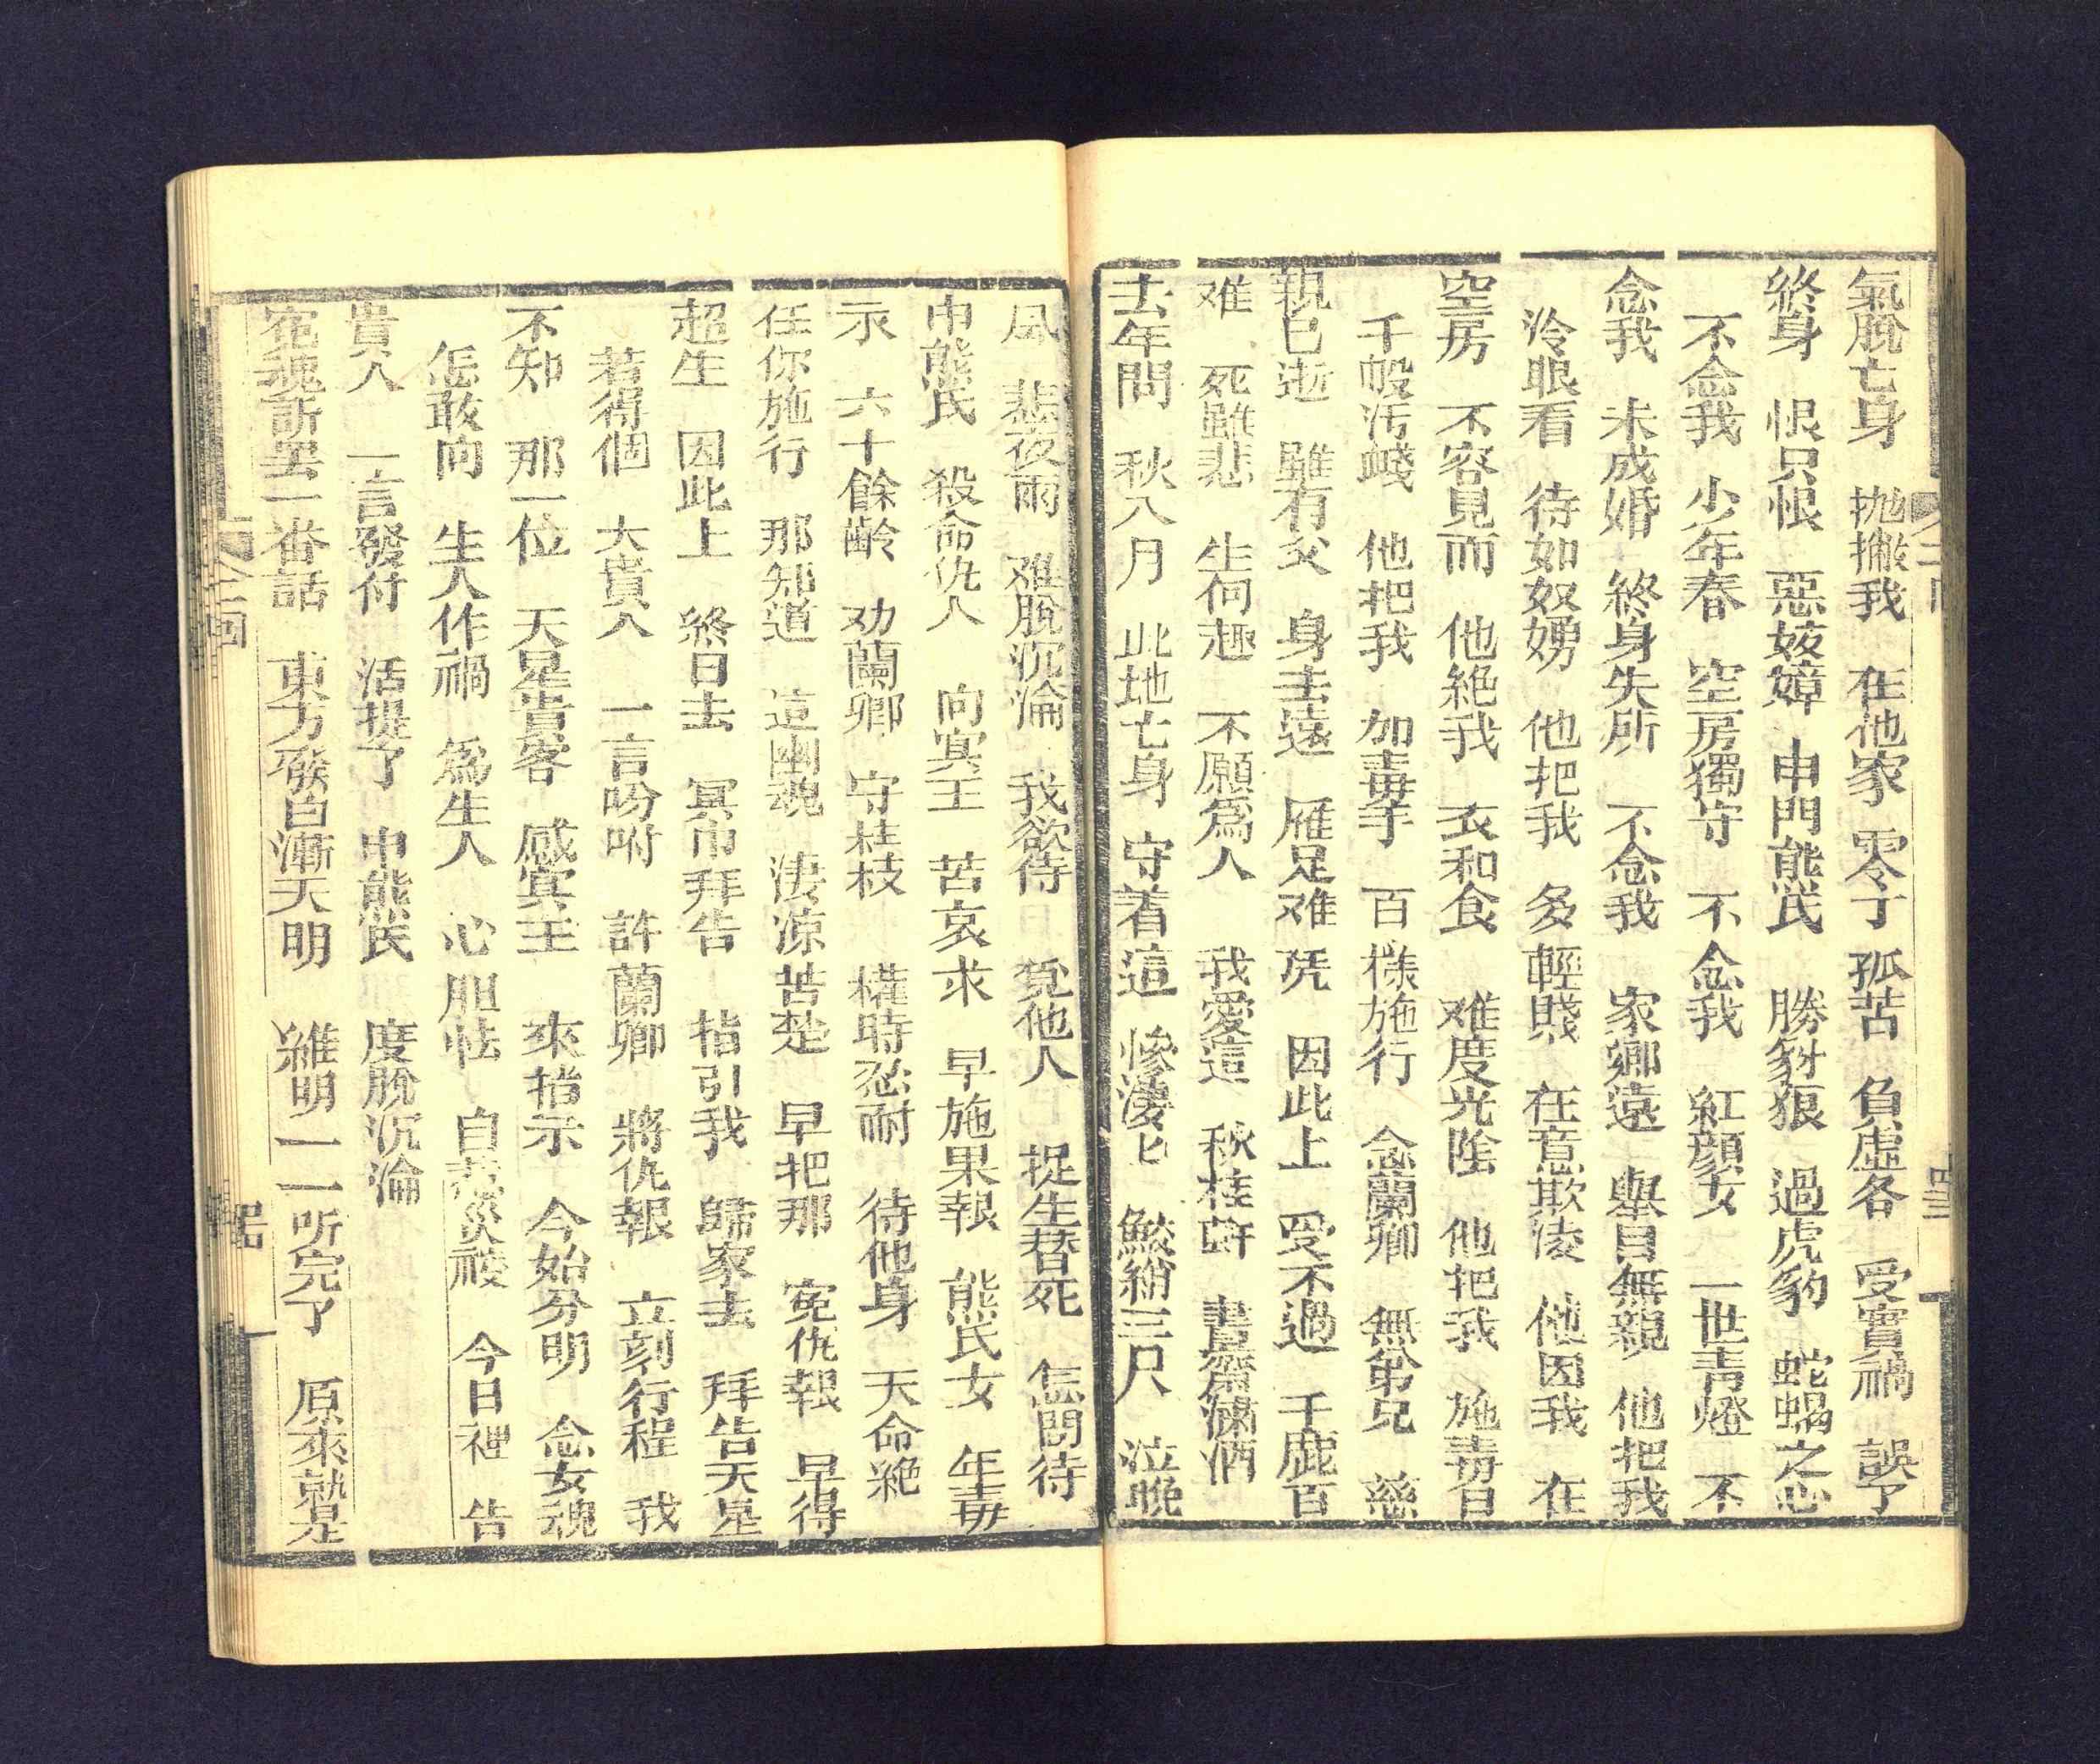 氣脫亡身　抛撇我　在他家　零丁孤苦　負虛名　受實禍　誤了
終身　恨只恨　惡妓嫜　申門熊氏　勝豺狼　過虎豹　蛇蝎之心
不念我　少年春　空房獨守　不念我　紅顏女　一世青燈　不
念我　未成婚　終身失所　不念我　家鄉遠　舉目無親　他把我
冷眼看　待如奴嫚　他把我　多輕賤　在意欺凌　他因我　在
空房　不容見面　他絕我　衣和食　难度光陰　他把我　施毒日
千般污衊　他把我　加毒手　百樣施行　念蘭卿　無弟兄　慈
親已逝　雖有父　身去遠　雁足难凭　因此上　受不過　千魔百
难　死雖悲　生何趣　不願爲人　我愛這　秋桂軒　書齋瀟洒
去年間　秋八月　此地亡身　守着這　慘淒匕　鮫綃三尺　泣晚
風　悲夜雨　难脫沉淪　我欲待　覓他人　捉生替死　怎聞待
申熊氏　殺命仇人　向㝠王　苦哀求　早施果報　熊氏女　年壽
永　六十餘齡　劝蘭卿　守桂枝　權時忍耐　待他身　天命絕
任你施行　那知道　這幽魂　淒凉苦楚　早把那　冤仇報　早得
超生　因此上　終日去　冥中拜告　指引我　歸家去　拜告天星
若得個　大貴人　一言吩咐　許蘭卿　將仇報　立刻行程　我
不知　那一位　天星貴客　感㝠王　來指示　今始分明　念女魂
怎敢向　生人作禍　爲生人　心胆怯　自惹災祲　今日裡　告
貴人　一言發付　活捉了　申熊氏　度脫沉淪
冤魂訴罢一番話　東方發白漸天明　維明一一听完了　原來就是